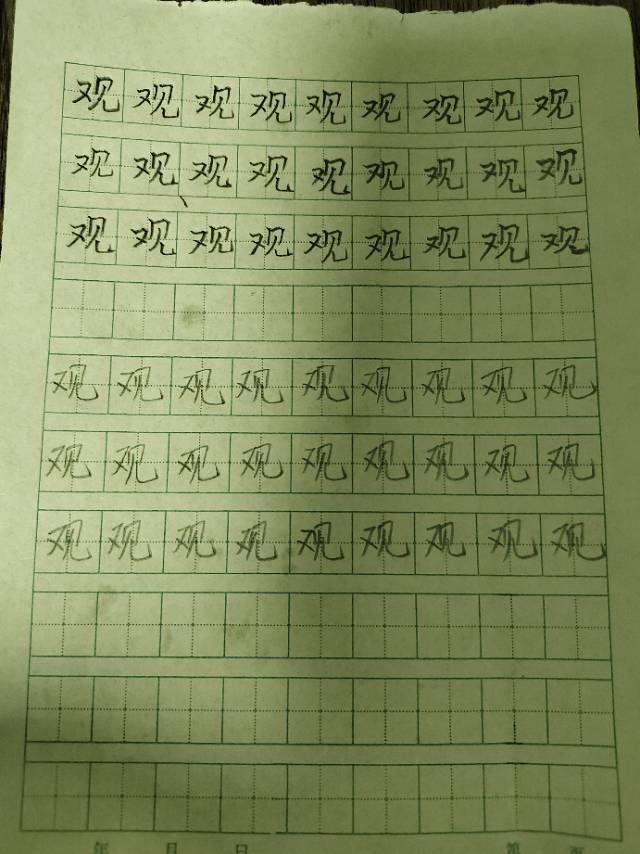 观观观观观观观观观
观观观观观观观观观
观观观观观观观观观
观观观观观观观观观
观观观观观观观观观
观观观观观观观观观
年 月 日 第 页